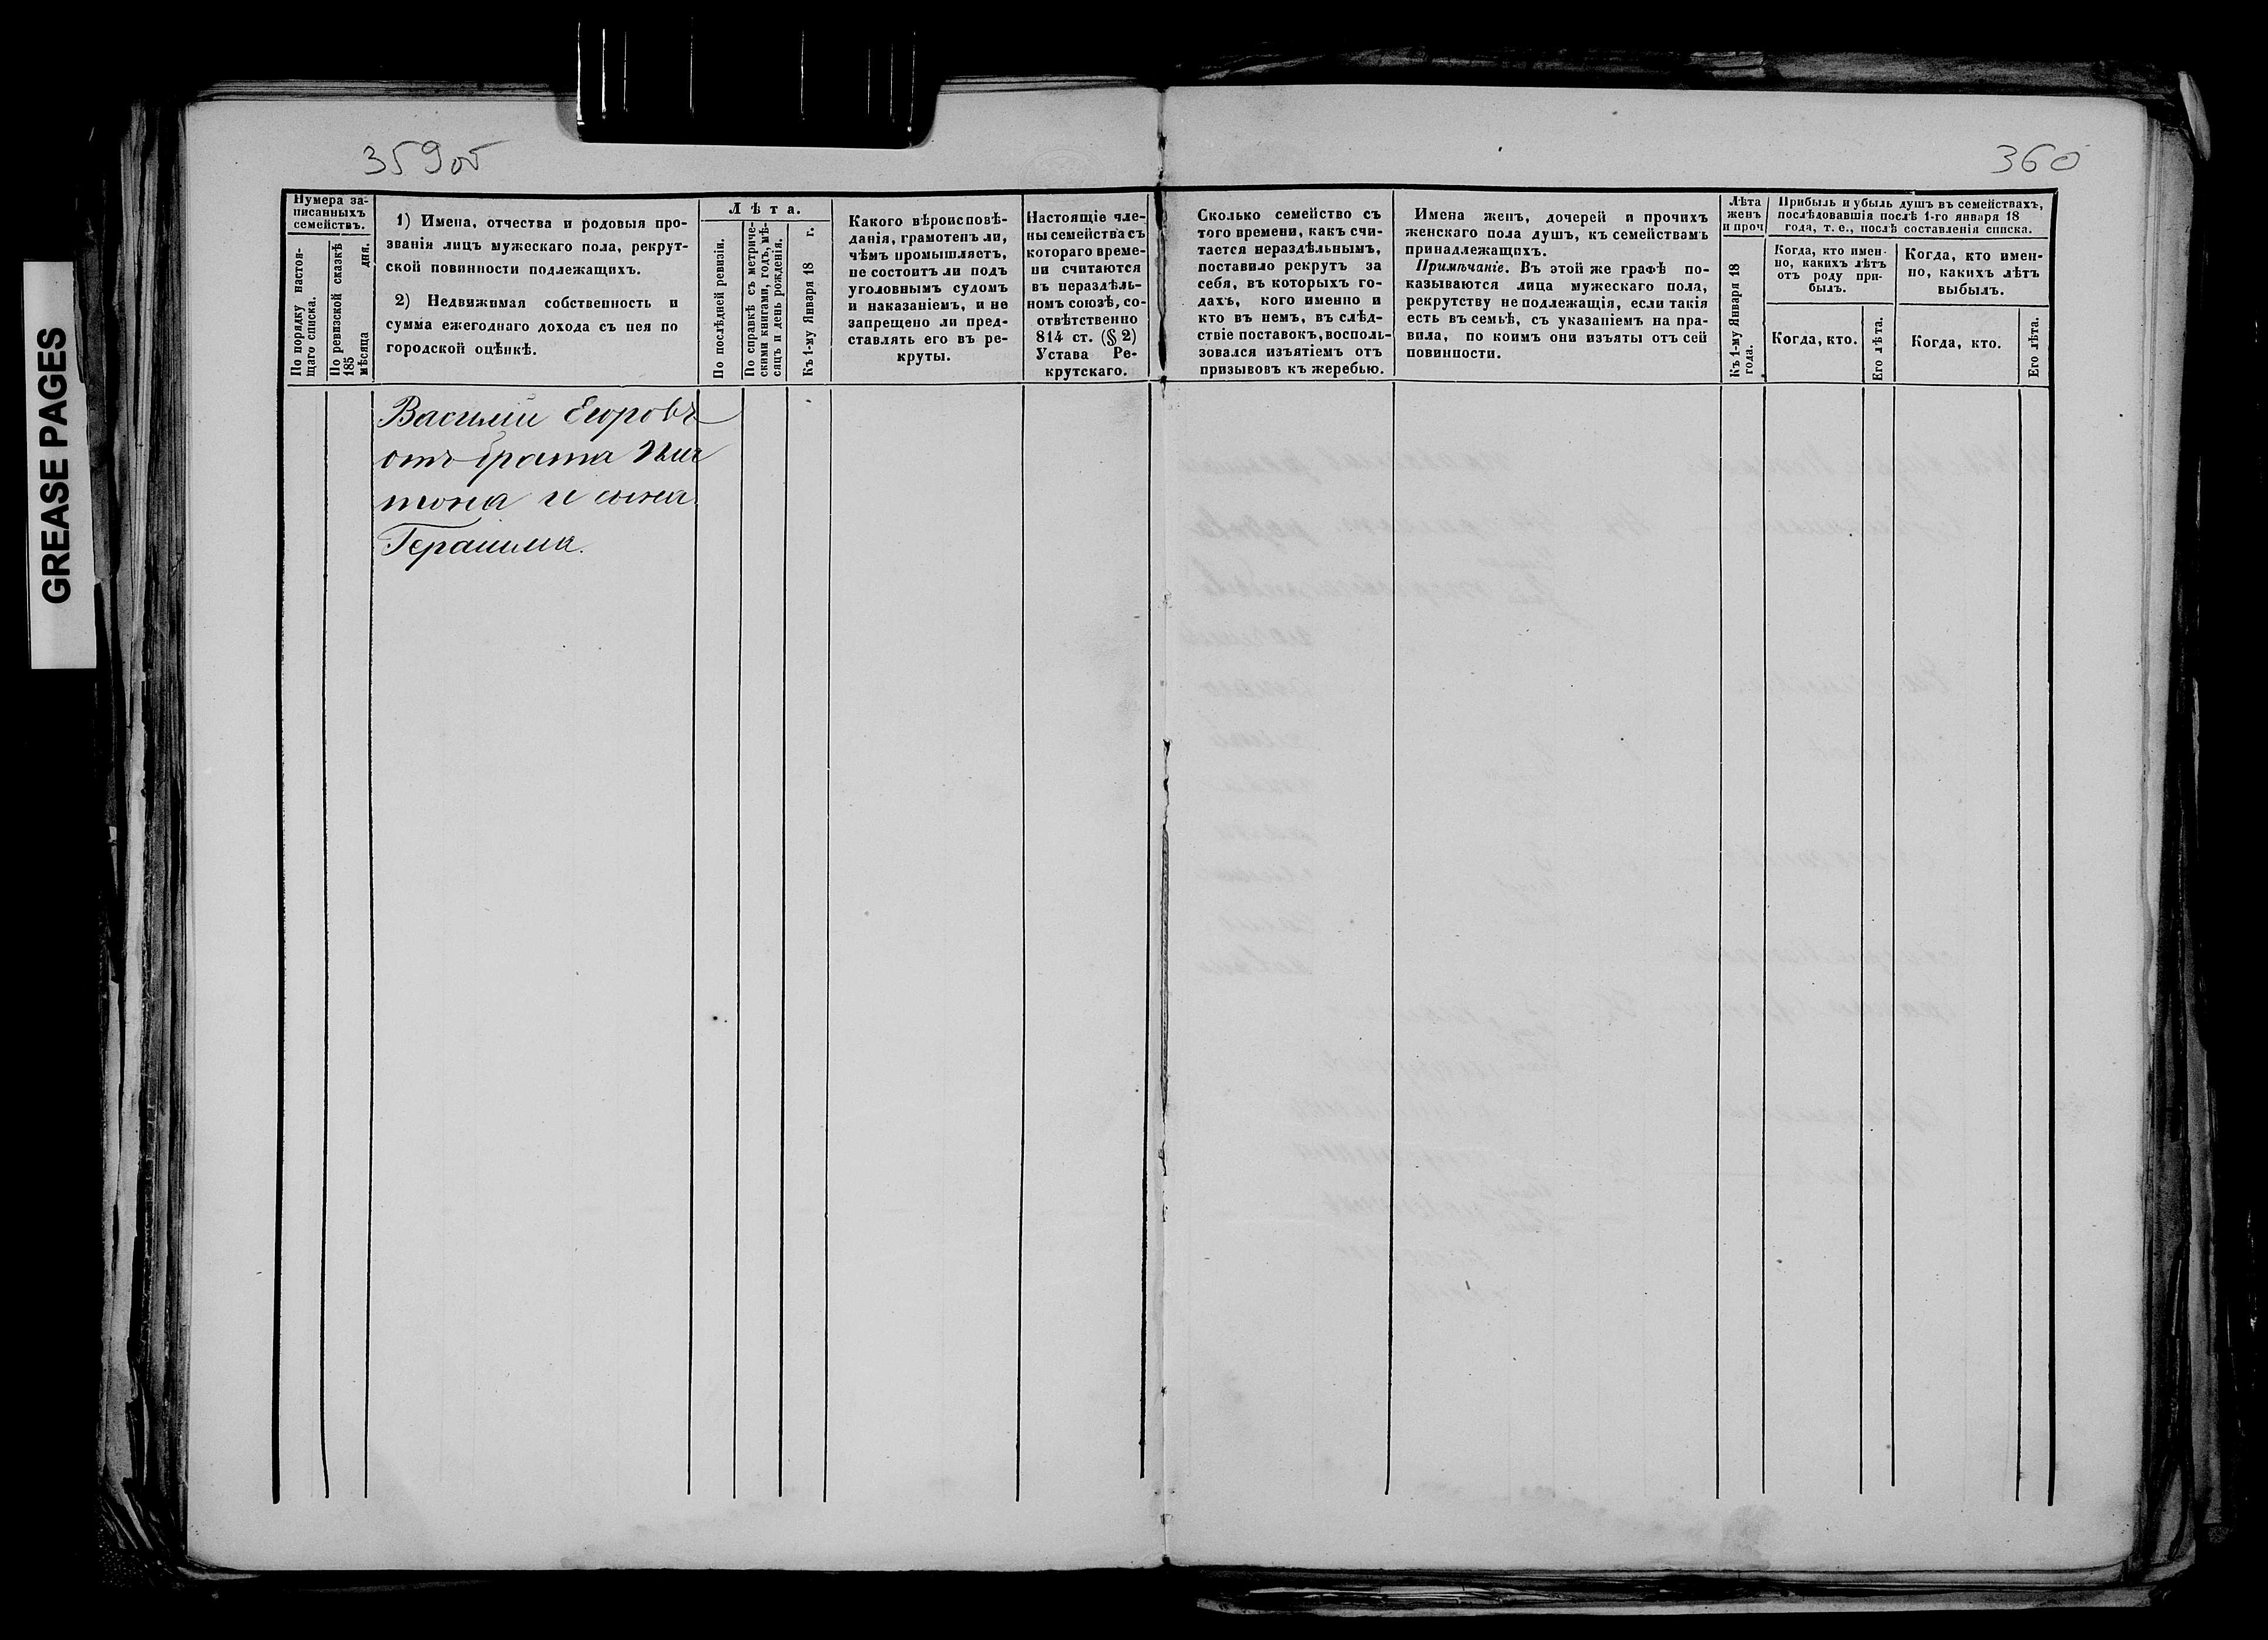 GREASE PAGES
359об
360
Нумера за-
писанныхъ
семействъ.
По порядку настоя-
щаго списка.
По ревизской сказкѣ
185
мѣсяца дня.
1) Имена, отчества и родовыя про-
званія лицъ мужескаго пола, рекрут-
ской повинности подлежащихъ.
2) Недвижимая собственность и
сумма ежегоднаго дохода съ нея по
городской оцѣнкѣ.
Лѣта.
По послѣдней ревизіи.
По справкѣ съ метриче-
скими книгами, годъ, мѣ-
сяцъ и день рожденія.
Къ 1-му Января 18 г.
Какого вѣроисповѣ-
данія, грамотенъ ли,
чѣмъ промышляетъ,
не состоитъ ли подъ
уголовнымъ судомъ
и наказаніемъ, и не
запрещено ли пред-
ставлять его въ ре-
круты.
Настоящіе чле-
ны семейства съ
котораго време-
ни считаются
въ нераздѣль-
номъ союзѣ, со-
отвѣтственно
814 ст. (§ 2)
Устава Ре-
крутскаго.
Сколько семейство съ
того времени, какъ счи-
тается нераздѣльнымъ,
поставило рекрутъ за
себя, въ которыхъ го-
дахъ, кого именно и
кто въ немъ, въ слѣд-
ствіе поставокъ, восполь-
зовался изъятіемъ отъ
призывовъ къ жеребью.
Имена женъ, дочерей и прочихъ
женскаго пола душъ, къ семействамъ
принадлежащихъ.
Примѣчаніе. Въ этой же графѣ по-
казываются лица мужескаго пола,
рекрутству не подлежащія, если такія
есть въ семьѣ, съ указаніемъ на пра-
вила, по коимъ они изъяты отъ сей
повинности.
Лѣта
женъ
и проч
Къ 1-му Января 18
года.
Прибыль и убыль душъ въ семействахъ,
послѣдовавшія послѣ 1-го января 18
года, т. е., послѣ составленія списка.
Когда, кто имен-
но, какихъ лѣтъ
отъ роду при-
былъ.
Когда, кто.
Его лѣта.
Когда, кто имен-
но, какихъ лѣтъ
выбылъ.
Когда, кто.
Его лѣта.
Василій Егоровъ
отъ брата
и сына
Герасима.